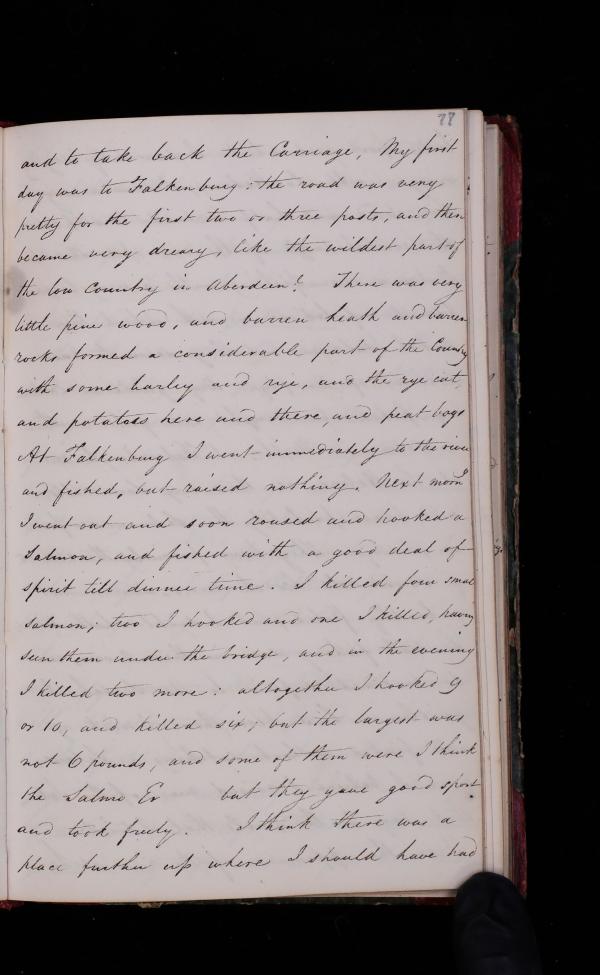 77
and to take back the Carriage. My first
day was to Falkenburg: the road was very
pretty for the first two or three posts, and then
became very dreary, like the wildest part of
the low Country in Aberdeen! There was very
little pine wood, and barren heath and barren
rocks formed a considerable part of the Country
with some barley and rye, and the rye cut,
and potatoes here and there, and peat bogs
At Falkenburg I went immediately to the river
and fished, but raised nothing. Next morng
I went out and soon roused and hooked a
Salmon, and fished with a good deal of
spirit till dinner time. I killed four small
salmon; two I hooked and one I killed, having
seen them under the bridge, and in the evening
I killed two more: altogether I hooked 9
or 10, and killed six; but the largest was
not 6 pounds, and some of them were I think
the Salmo Er but they gave good sport
and took freely. I think there was a
place further up where I should have had